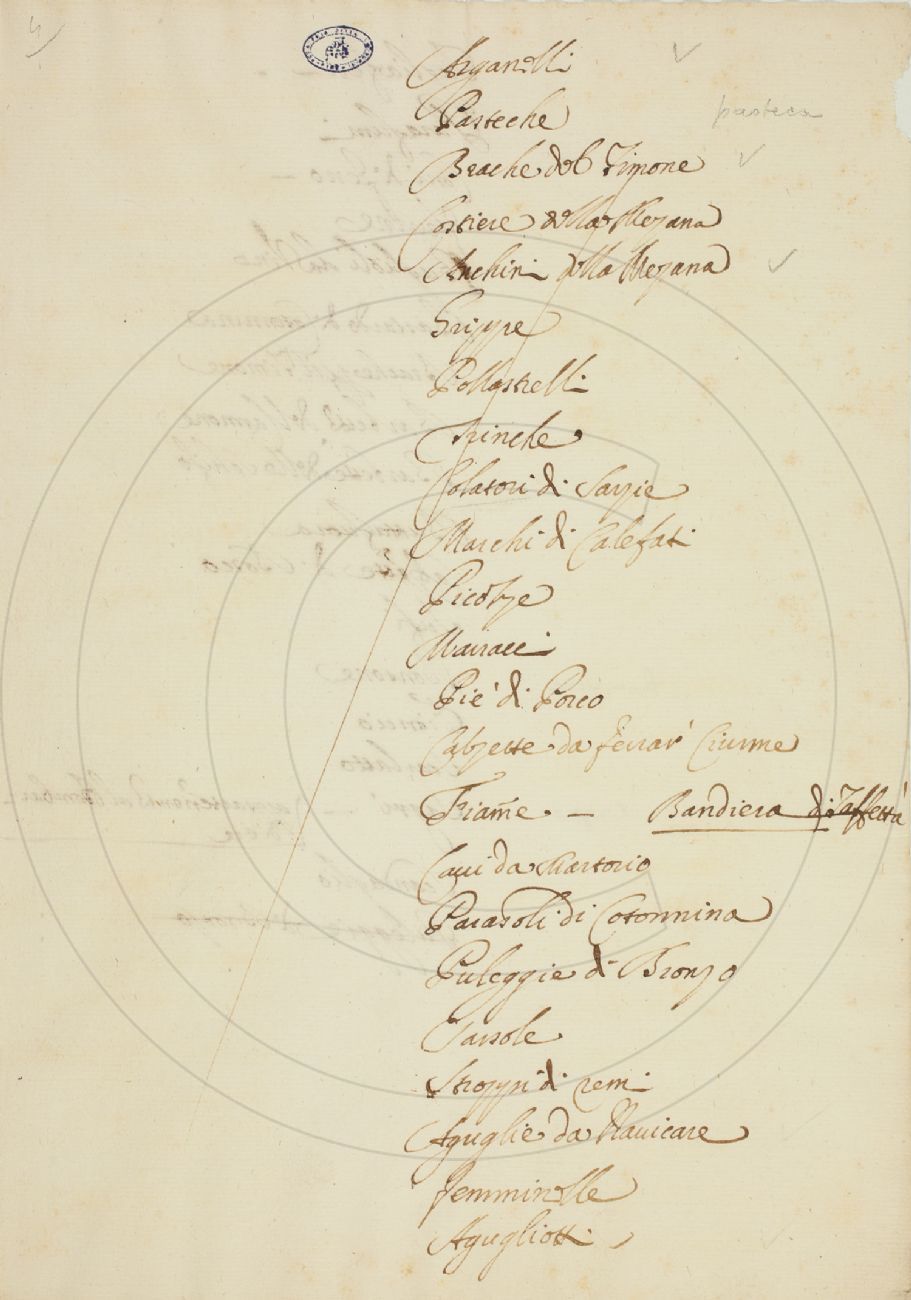 Arganelli
Pasteche
pasteca
Brache del Timone
Costiere della Mezana
Anchini della Mezana
Grippe
Pollastrelli
Trinche
Colatori di Sarzie
Marchi di Calefati
Picozze
Pie' di Porco
Calzette da ferrar' Ciurme
Fiam̃e. — Bandiera di Taffettà
Caui da
Parasoli di Cotonnina
Puleggie di Bronzo
Stroppi di remi
Aguglie da Nauicare
femminelle
Agugliotti